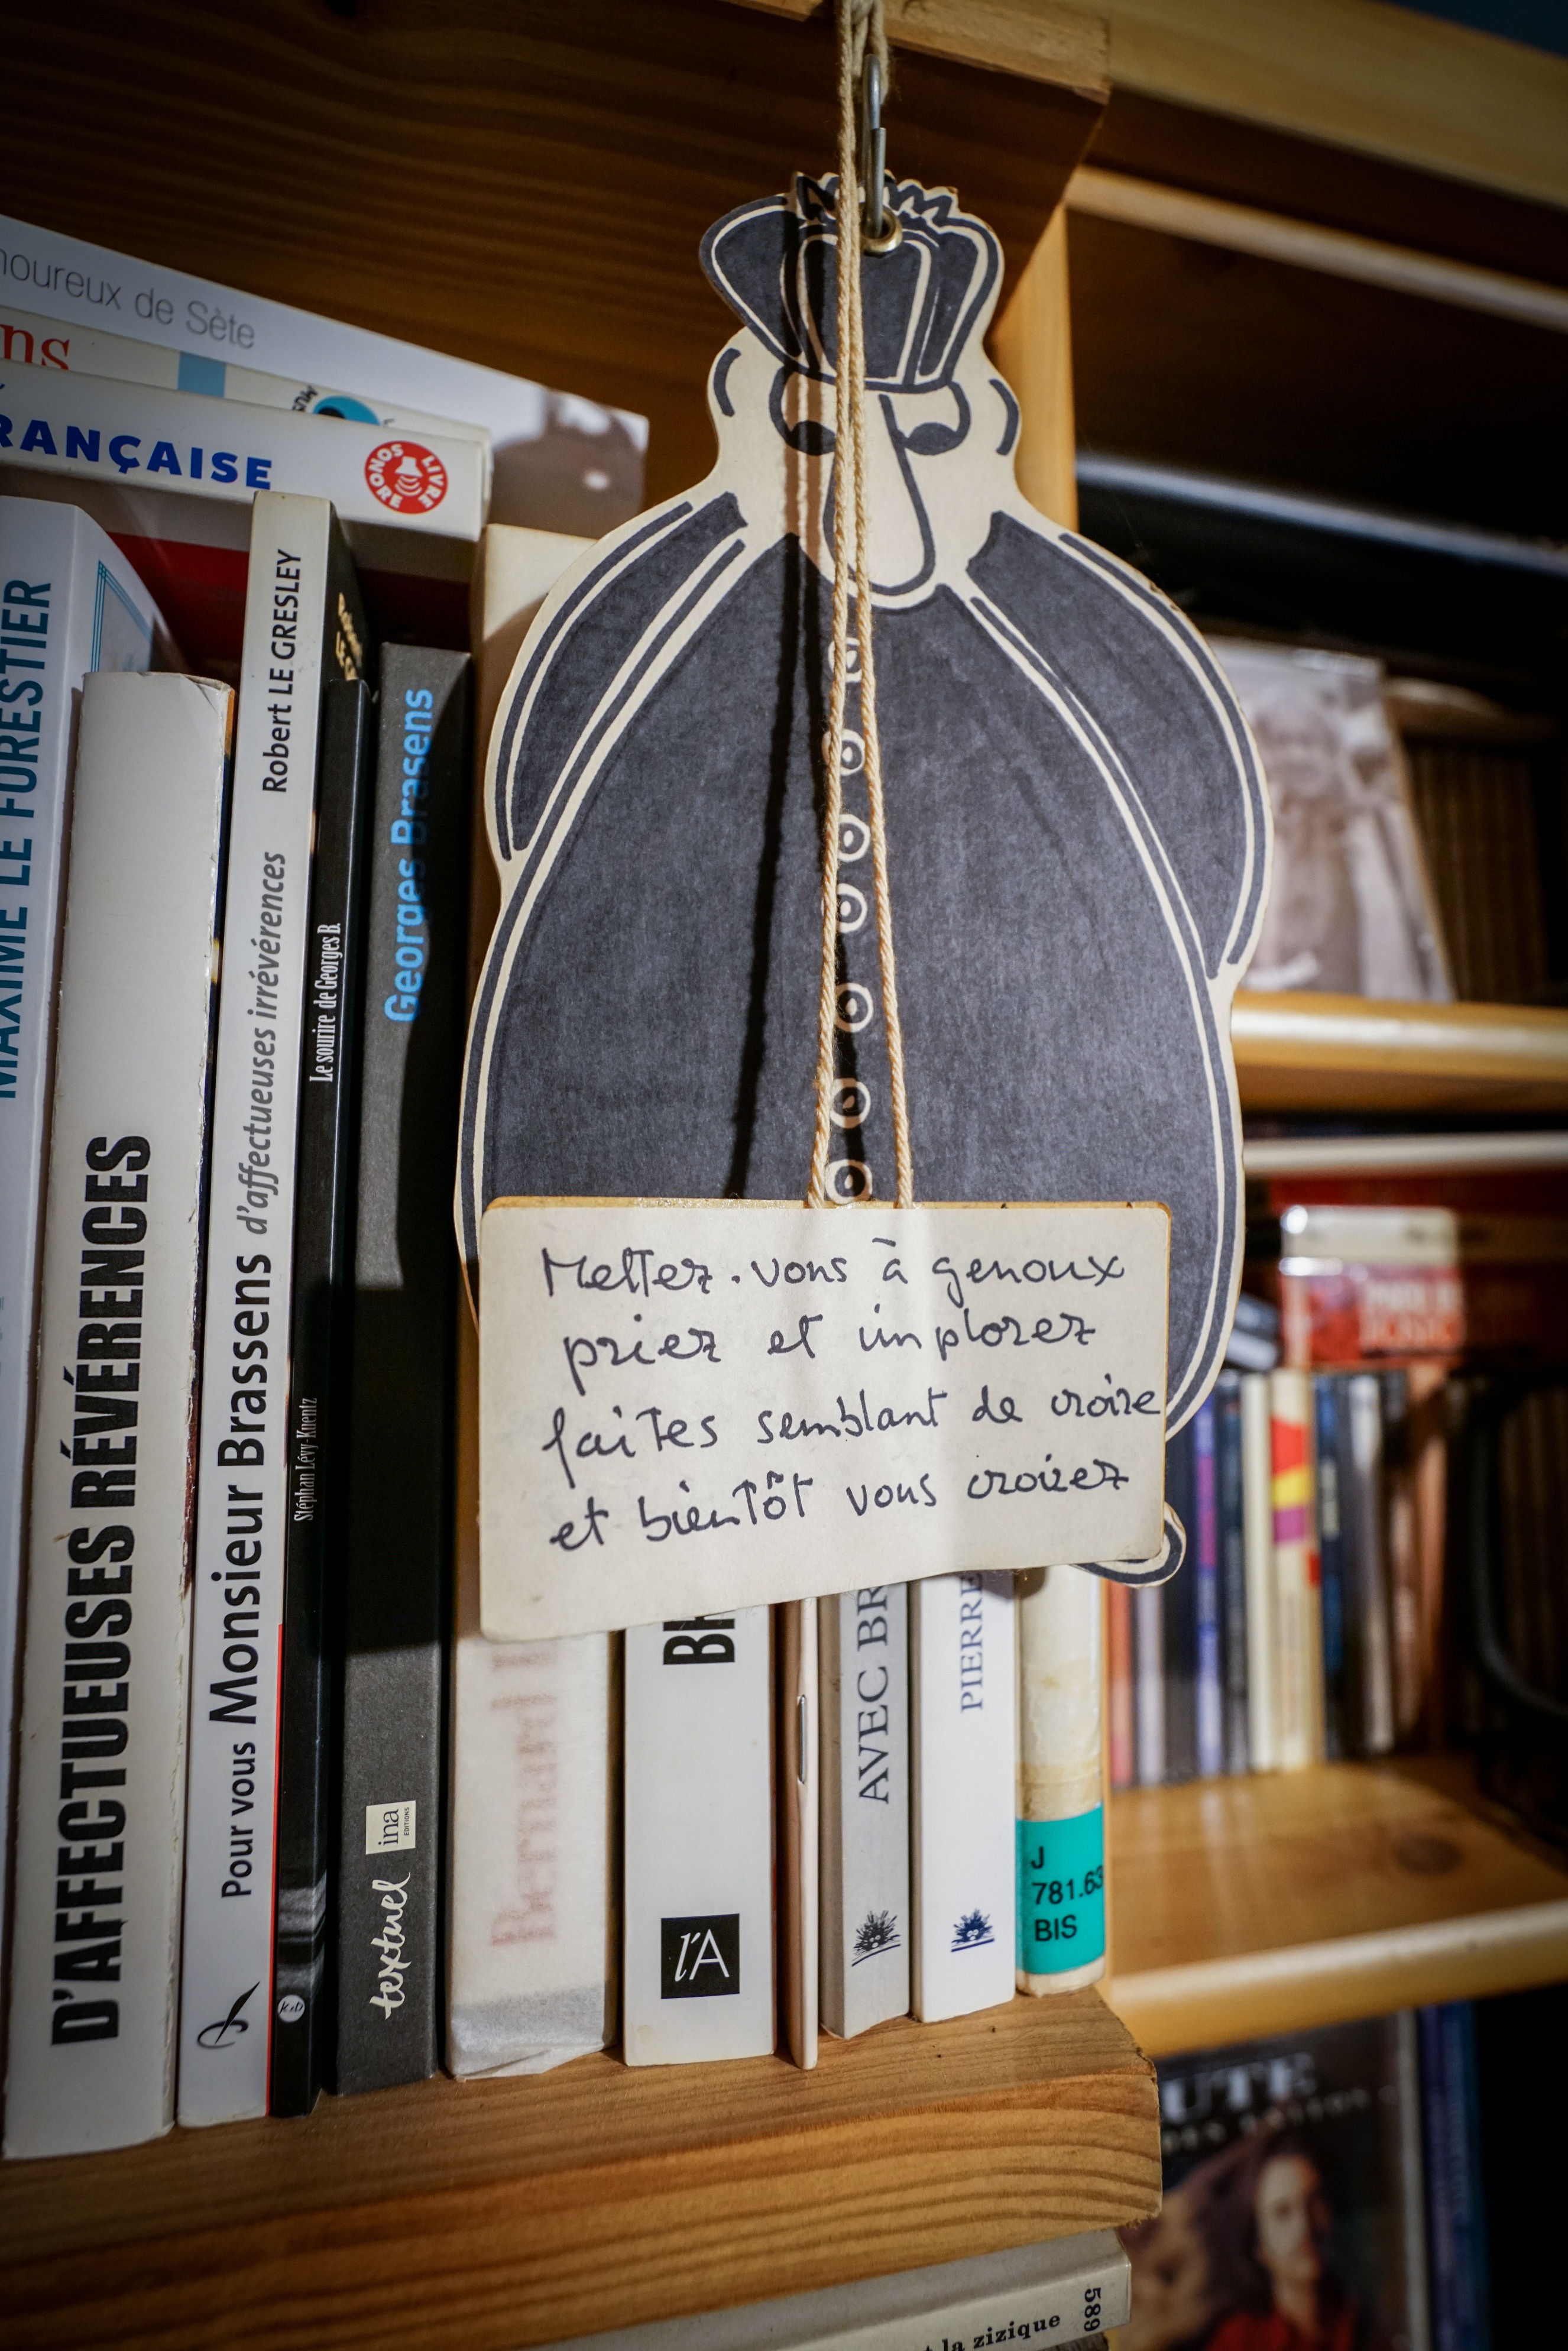 Mettez-vous à genoux
priez et implorez
faites semblant de croire
et bientôt vous croirez
oureux de Sète
ns
RANÇAISE
LIVRE SONORE
MAXIME LE FORESTIER
D'AFFECTUEUSES RÉVÉRENCES
Pour vous Monsieur Brassens d'affectueuses irrévérences Robert LE GRESLEY
Le sourire de Georges B.
Stéphan Lévy-Kuentz
K&D
Georges Brasens
ina
EDITIONS
textuel
Bernard
BR
l'A
AVEC BR
PIERRE
J
781.63
BIS
UTE
la zizique
589